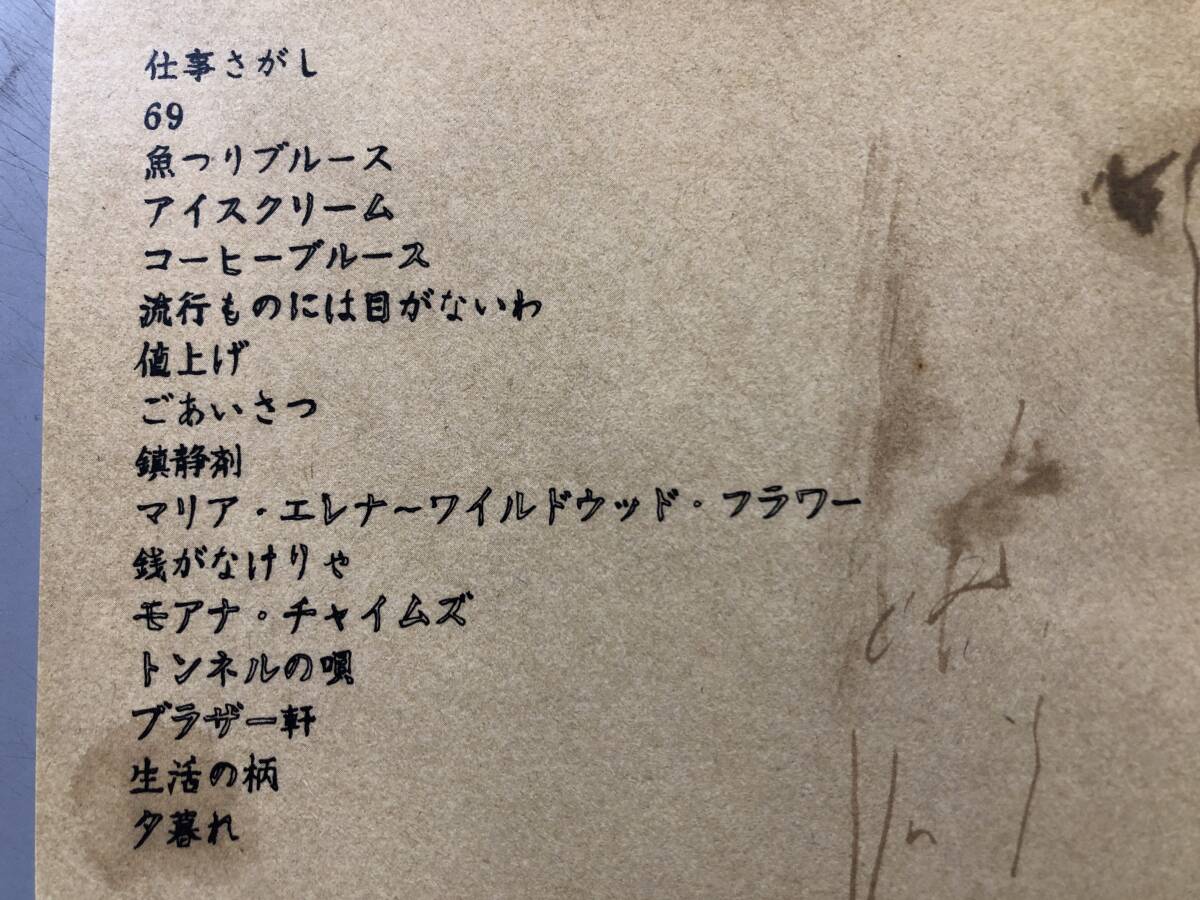 仕事さがし
69
魚つりブルース
アイスクリーム
コーヒーブルース
流行ものには目がないわ
値上げ
ごあいさつ
鎮静剤
マリア・エレナ~ワイルドウッド・フラワー
銭がなけりゃ
モアナ・チャイムズ
トンネルの唄
ブラザー軒
生活の柄
夕暮れ